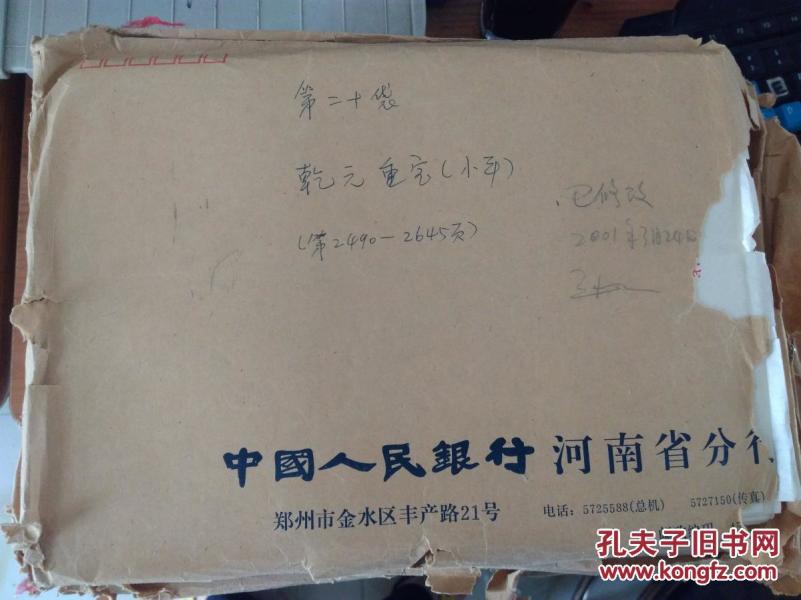 第二十袋
乾元重宝(小平)
(第2490—2645页)
已修改
2001年3月24日
中國人民銀行 河南省分行
郑州市金水区丰产路21号 电话：5725588(总机) 5727150(传真)
孔夫子旧书网
www.kongfz.com